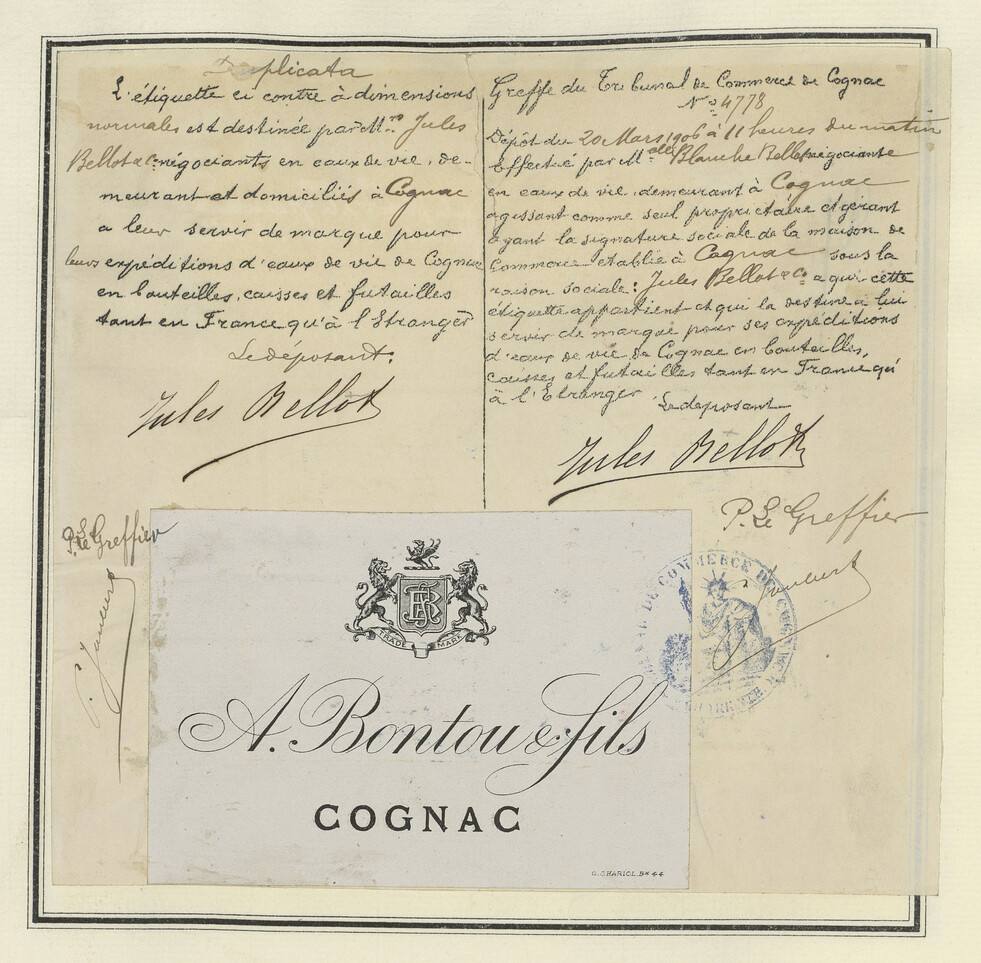 Duplicata
L'étiquette ci contre à dimensions
normales est destinée par Mrs Jules
Bellot & Co négociants en eaux de vie, de-
meurant et domiciliés à Cognac
a leur servir de marque pour
leurs expéditions d'eaux de vie de Cognac
en bouteilles, caisses et futailles
tant en France qu'à l'Etranger
Le déposant.
Jules Bellot
P. Le Greffier
Greffe du Tribunal de Commerce de Cognac
No 4778
Dépôt du 20 Mars 1906 à 11 heures du matin
Effectué par Melle Blanche Bellot négociante
en eaux de vie, demeurant à Cognac
agissant comme seul propriétaire et gérant
ayant la signature sociale de la maison de
Commerce établie à Cognac sous la
raison sociale: Jules Bellot & Co a qui cette
étiquette appartient et qui la destine à lui
servir de marque pour ses expéditions
d'eaux de vie de Cognac en bouteilles,
caisses et futailles tant en France qu'
à l'Etranger
Le déposant
Jules Bellot
P. Le Greffier
DE COMMERCE DE COGNAC
TRADE MARK
A. Bontou & fils
COGNAC
G. CHARIOL. Bx 44